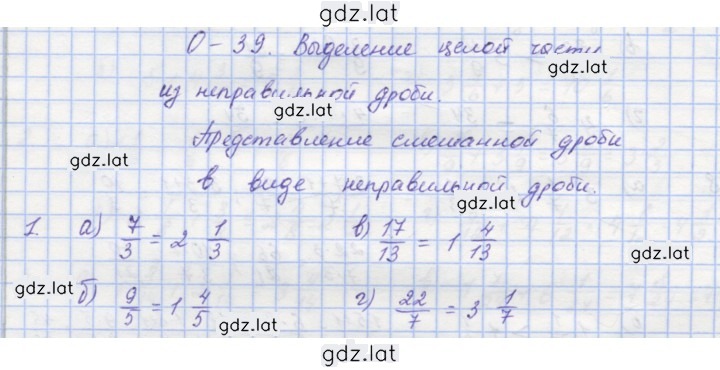 gdz.lat
О-39. Выделение целой части
gdz.lat
из неправильной дроби.
gdz.lat
Представление смешанной дроби
gdz.lat
в виде неправильной дроби.
gdz.lat
1. а) 7/3 = 2 1/3 в) 17/13 = 1 4/13
gdz.lat gdz.lat
б) 9/5 = 1 4/5 г) 22/7 = 3 1/7
gdz.lat gdz.lat
gdz.lat